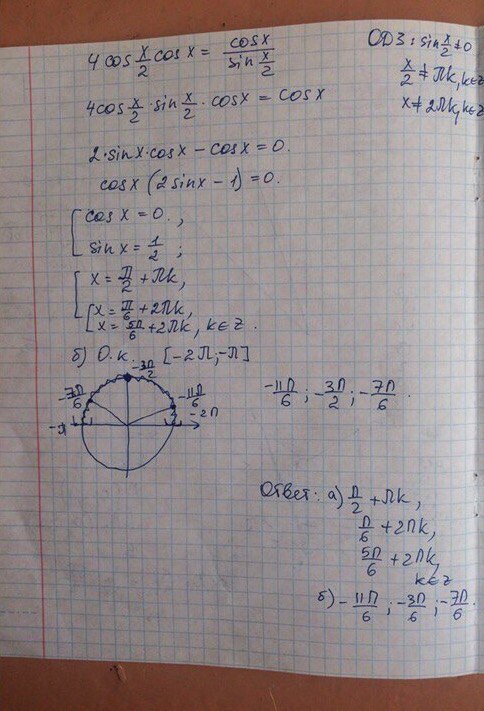 4 cos x/2 cos x = cos x / sin x/2
ОДЗ: sin x/2 ≠ 0
x/2 ≠ πk, k∈z
x ≠ 2πk, k∈z
4cos x/2 · sin x/2 · cos x = cos x
2·sin x·cos x − cos x = 0.
cos x (2 sin x − 1) = 0.
[ cos x = 0.,
sin x = 1/2 ;
[ x = π/2 + πk,
[ x = π/6 + 2πk,
x = 5π/6 + 2πk, k∈z.
б) О.к. [−2π; −π]
−3π/2
−7π/6
−11π/6
−π
−2π
−11π/6 ; −3π/2 ; −7π/6 .
Ответ: а) π/2 + πk,
π/6 + 2πk,
5π/6 + 2πk,
k∈z
б) −11π/6 ; −3π/6 ; −7π/6 .